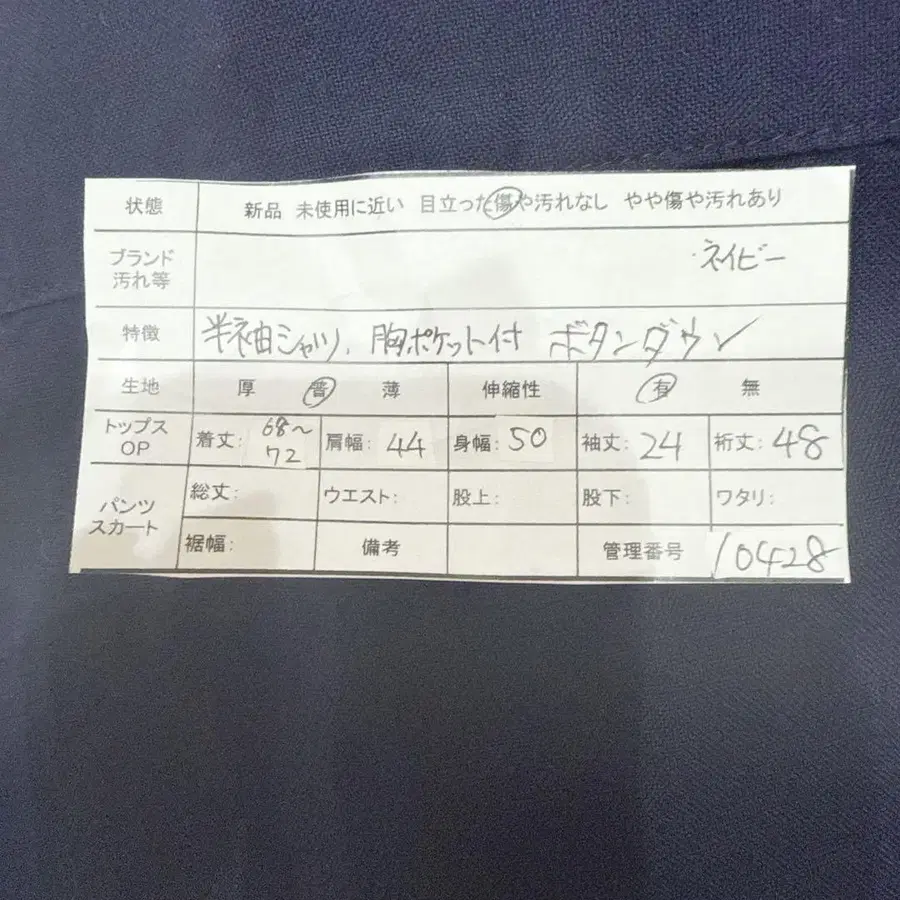 状態 新品 未使用に近い 目立った傷や汚れなし やや傷や汚れあり
ブランド
汚れ等 ネイビー
特徴 半袖シャツ、胸ポケット付 ボタンダウン
生地 厚 普 薄 伸縮性 有 無
トップス
OP 着丈: 68〜72 肩幅: 44 身幅: 50 袖丈: 24 裄丈: 48
パンツ
スカート 総丈: ウエスト: 股上: 股下: ワタリ:
裾幅: 備考 管理番号 10428